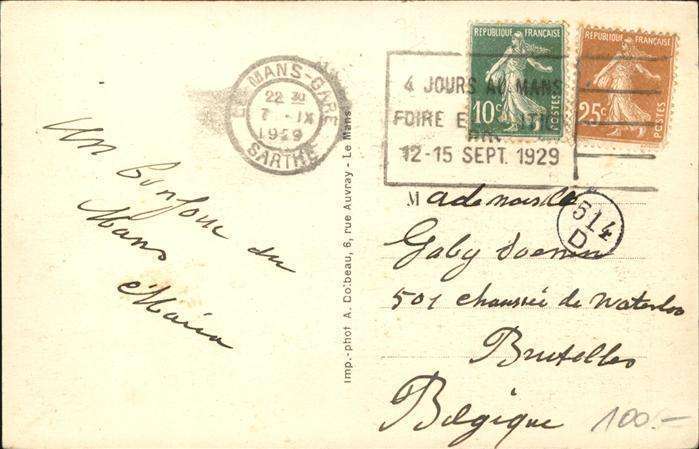 LE MANS-GARE
22 30
7 - IX
1929
SARTHE
4 JOURS AU MANS
FOIRE EXPOSITION
12-15 SEPT. 1929
REPUBLIQUE FRANÇAISE
10c
POSTES
REPUBLIQUE FRANÇAISE
25c
POSTES
Un bonjour du
Mans
Maria
Imp.-phot A. Dolbeau, 6, rue Auvray - Le Mans
Mademoiselle
514
D
Gaby
501 chaussée de Waterloo
Bruxelles
Belgique
100.-